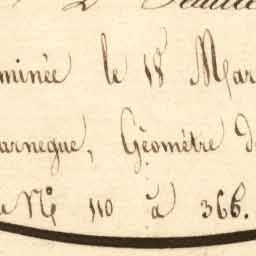 minée le 18 Mar
arnegue, Géomètre d
e Nº 110 à 366.